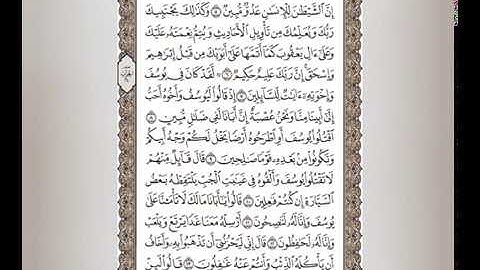 إِنَّ ٱلشَّيْطَٰنَ لِلْإِنسَٰنِ عَدُوٌّ مُّبِينٌ ۝ وَكَذَٰلِكَ يَجْتَبِيكَ
رَبُّكَ وَيُعَلِّمُكَ مِن تَأْوِيلِ ٱلْأَحَادِيثِ وَيُتِمُّ نِعْمَتَهُۥ عَلَيْكَ
وَعَلَىٰٓ ءَالِ يَعْقُوبَ كَمَآ أَتَمَّهَا عَلَىٰٓ أَبَوَيْكَ مِن قَبْلُ إِبْرَٰهِيمَ
وَإِسْحَٰقَ إِنَّ رَبَّكَ عَلِيمٌ حَكِيمٌ ۝ لَّقَدْ كَانَ فِي يُوسُفَ
وَإِخْوَتِهِۦٓ ءَايَٰتٌ لِّلسَّآئِلِينَ ۝ إِذْ قَالُوا۟ لَيُوسُفُ وَأَخُوهُ أَحَبُّ
إِلَىٰٓ أَبِينَا مِنَّا وَنَحْنُ عُصْبَةٌ إِنَّ أَبَانَا لَفِي ضَلَٰلٍ مُّبِينٍ ۝
ٱقْتُلُوا۟ يُوسُفَ أَوِ ٱطْرَحُوهُ أَرْضًا يَخْلُ لَكُمْ وَجْهُ أَبِيكُمْ
وَتَكُونُوا۟ مِنۢ بَعْدِهِۦ قَوْمًا صَٰلِحِينَ ۝ قَالَ قَآئِلٌ مِّنْهُمْ
لَا تَقْتُلُوا۟ يُوسُفَ وَأَلْقُوهُ فِي غَيَٰبَتِ ٱلْجُبِّ يَلْتَقِطْهُ بَعْضُ
ٱلسَّيَّارَةِ إِن كُنتُمْ فَٰعِلِينَ ۝ قَالُوا۟ يَٰٓأَبَانَا مَا لَكَ لَا تَأْمَ۫نَّا عَلَىٰ
يُوسُفَ وَإِنَّا لَهُۥ لَنَٰصِحُونَ ۝ أَرْسِلْهُ مَعَنَا غَدًا يَرْتَعْ وَيَلْعَبْ
وَإِنَّا لَهُۥ لَحَٰفِظُونَ ۝ قَالَ إِنِّي لَيَحْزُنُنِيٓ أَن تَذْهَبُوا۟ بِهِۦ وَأَخَافُ
أَن يَأْكُلَهُ ٱلذِّئْبُ وَأَنتُمْ عَنْهُ غَٰفِلُونَ ۝ قَالُوا۟ لَئِنْ